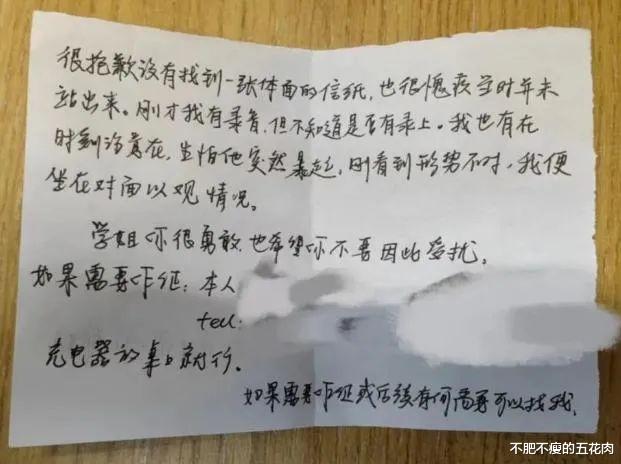 很抱歉没有找到一张体面的信纸，也很愧疚当时并未
站出来。刚才我有录音，但不知道是否有录上。我也有在
时刻注意在，生怕他突然暴起，刚看到形势不对，我便
坐在对面以观情况。
学姐你很勇敢，也希望你不要因此受扰。
如果需要作证：本人
tell:
充电器放桌上就行。
如果需要作证或后续有何需要可以找我。
不肥不瘦的五花肉